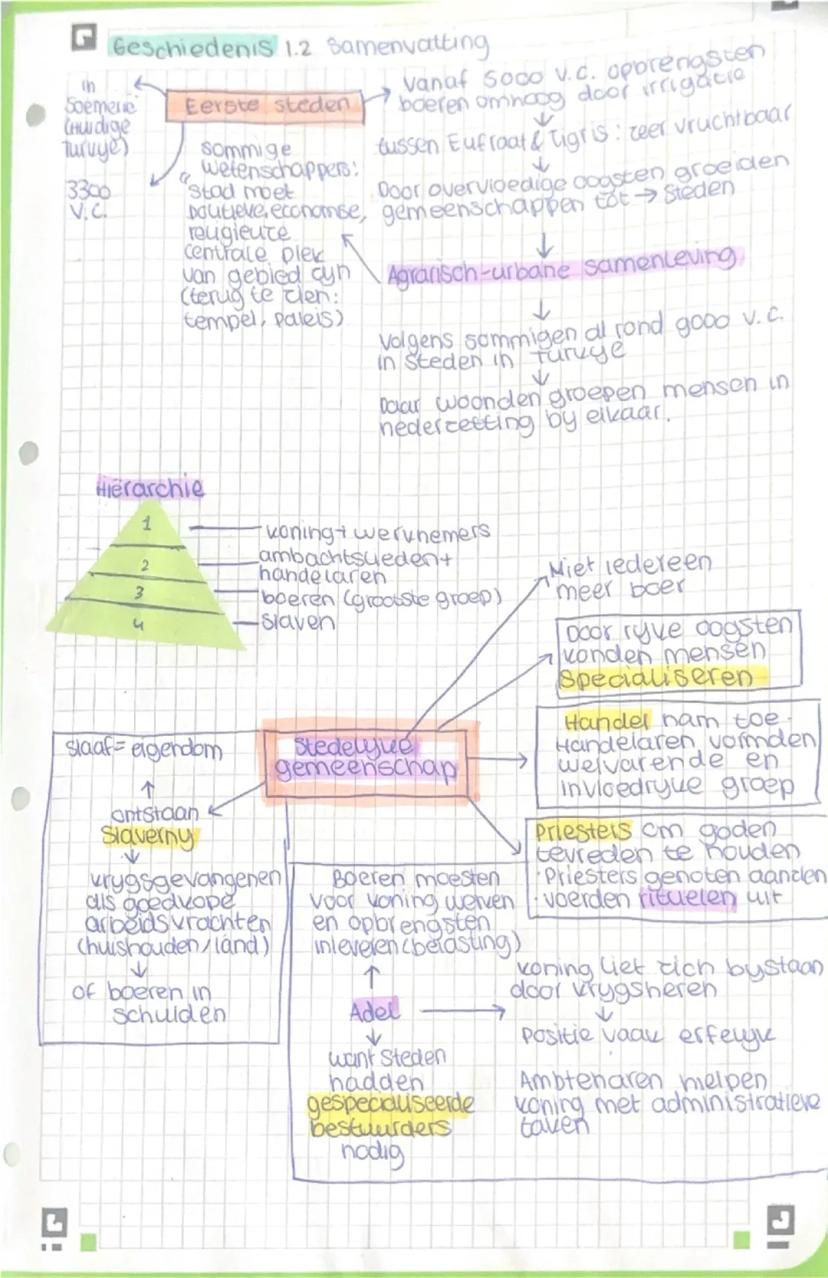 Geschiedenis 1.2 Samenvatting
in
Soemerië
(huidige
Turkije)
3300
v.C.
Eerste steden
sommige
wetenschappers:
"stad moet
politieke, economise,
religieuze
centrale plek
van gebied zijn
(terug te zien:
tempel, paleis)
vanaf 5000 v.C. opbrengsten
boeren omhoog door irrigatie
tussen Eufraat & Tigris: zeer vruchtbaar
Door overvloedige oogsten groeiden
gemeenschappen tot → steden
Agrarisch-urbane samenleving
Volgens sommigen al rond 9000 v.C.
in steden in Turkije
Daar woonden groepen mensen in
nederzetting bij elkaar.
Hiërarchie
1
2
3
4
koning + werknemers
ambachtslieden +
handelaren
boeren (grootste groep)
slaven
Niet iedereen
meer boer
Door rijke oogsten
konden mensen
specialiseren
Stedelijke
gemeenschap
Handel nam toe.
Handelaren vormden
welvarende en
invloedrijke groep
Priesters om goden
tevreden te houden
·Priesters genoten aanzien
·voerden rituelen uit
slaaf = eigendom
ontstaan
Slavernij
krijgsgevangenen
als goedkope
arbeidskrachten
(huishouden/land)
of boeren in
schulden
Boeren moesten
voor koning werken
en opbrengsten
inleveren (belasting)
Adel
want steden
hadden
gespecialiseerde
bestuurders
nodig
koning liet zich bijstaan
door krijgsheren
Positie vaak erfelijk
Ambtenaren helpen
koning met administratieve
taken